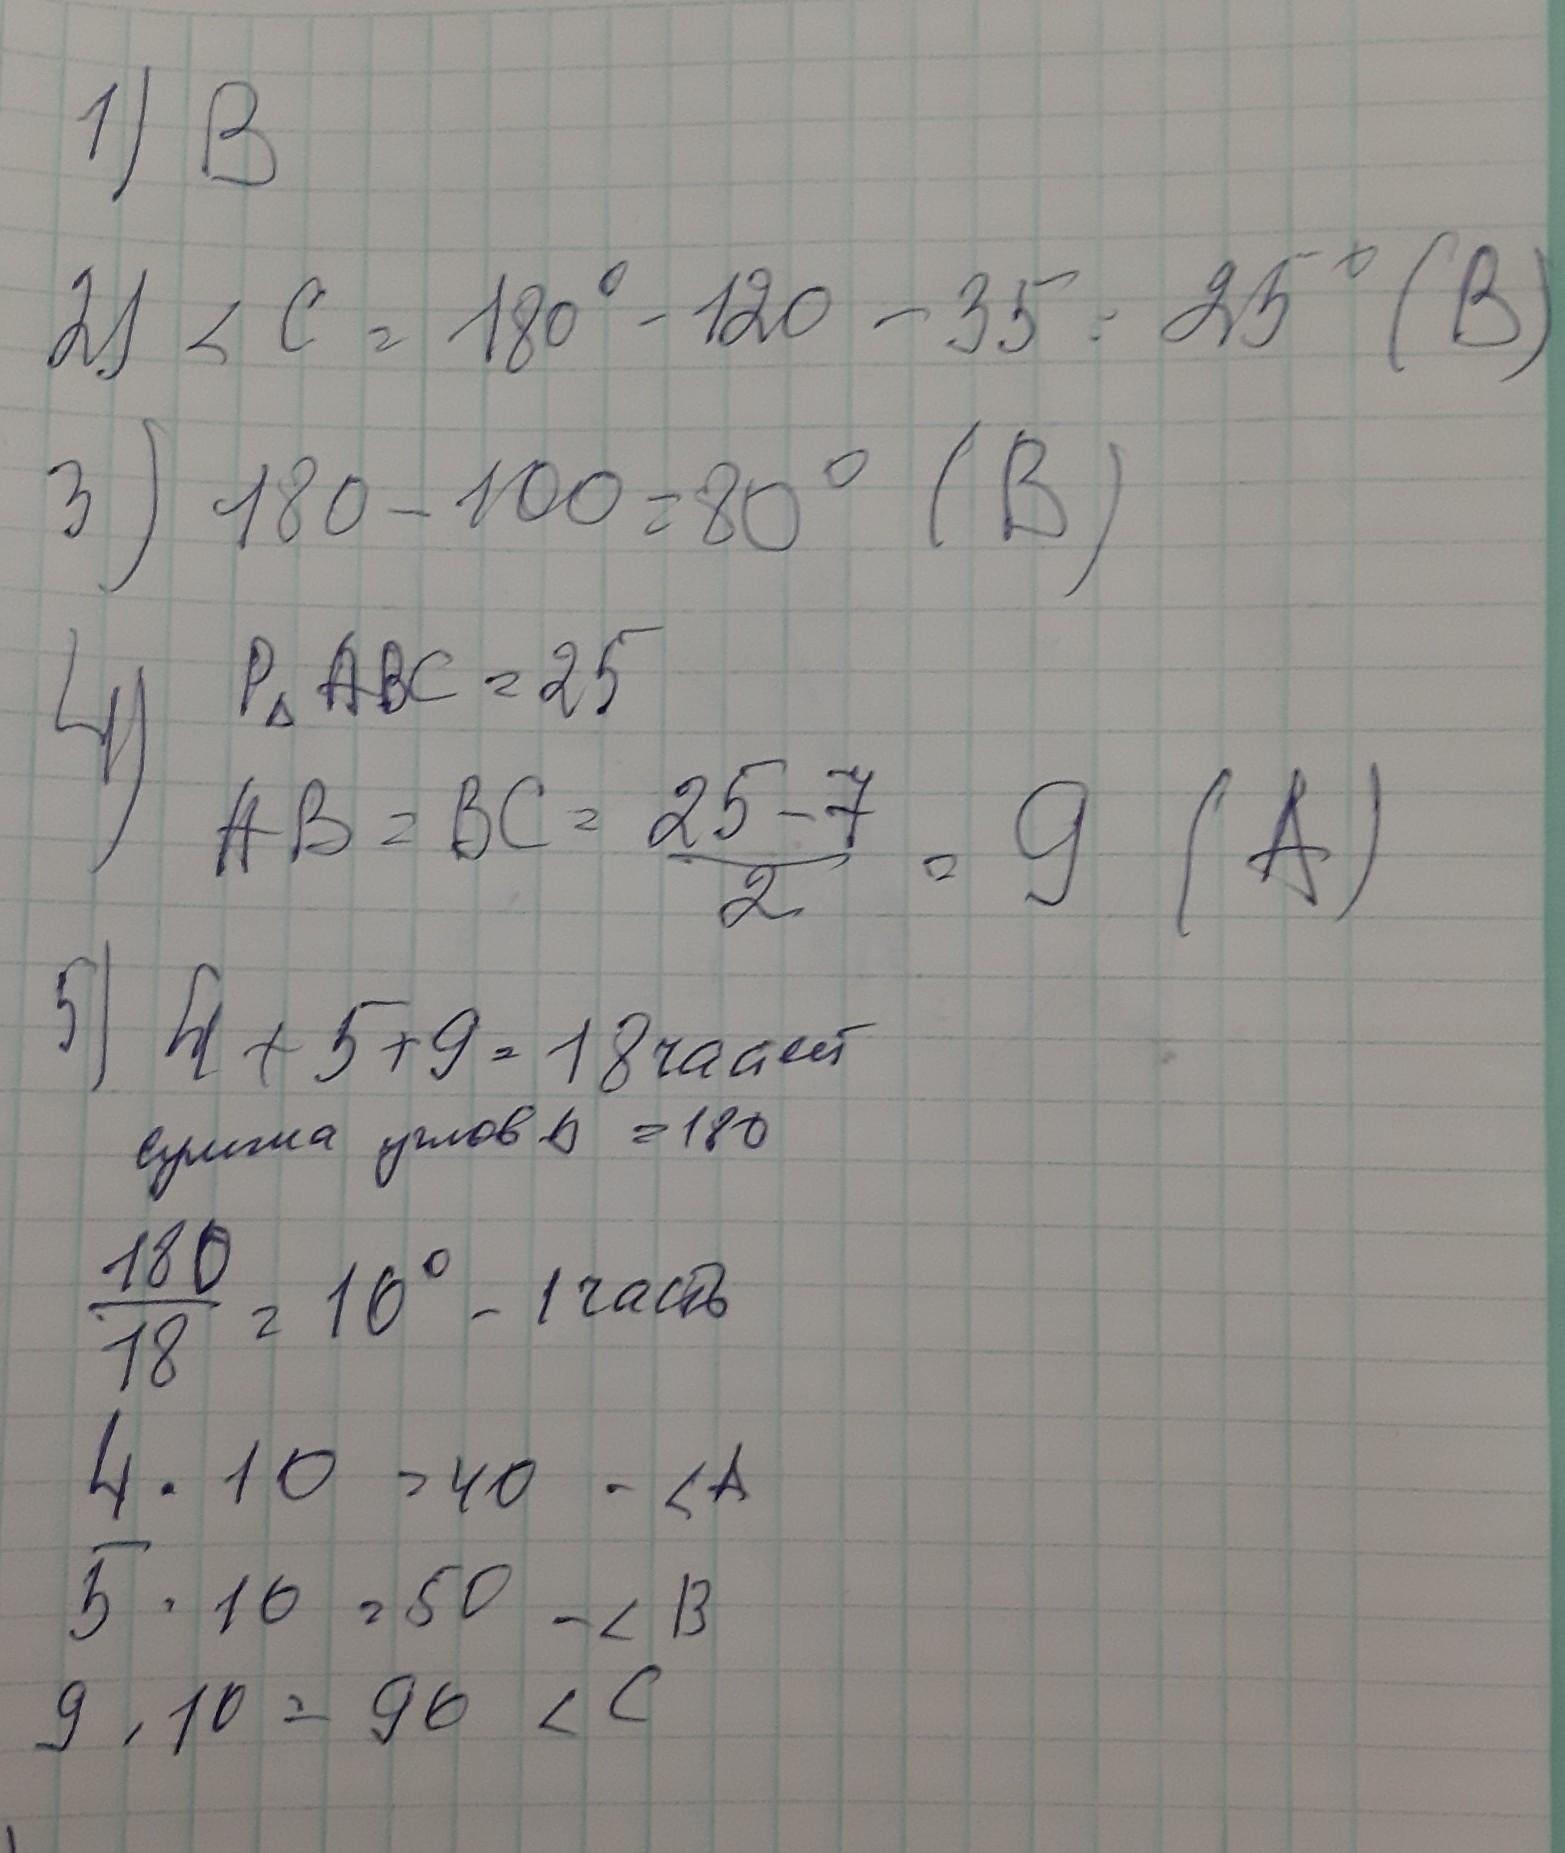 1) В
2) < C = 180° - 120 - 35 = 25° (В)
3) 180 - 100 = 80° (В)
4) P△ ABC = 25
AB = BC = \frac{25-7}{2} = 9 (А)
5) 4 + 5 + 9 = 18 частей
сумма углов △ = 180
\frac{180}{18} = 10° - 1 часть
4 · 10 = 40 - < A
5 · 10 = 50 - < B
9 · 10 = 90 < C